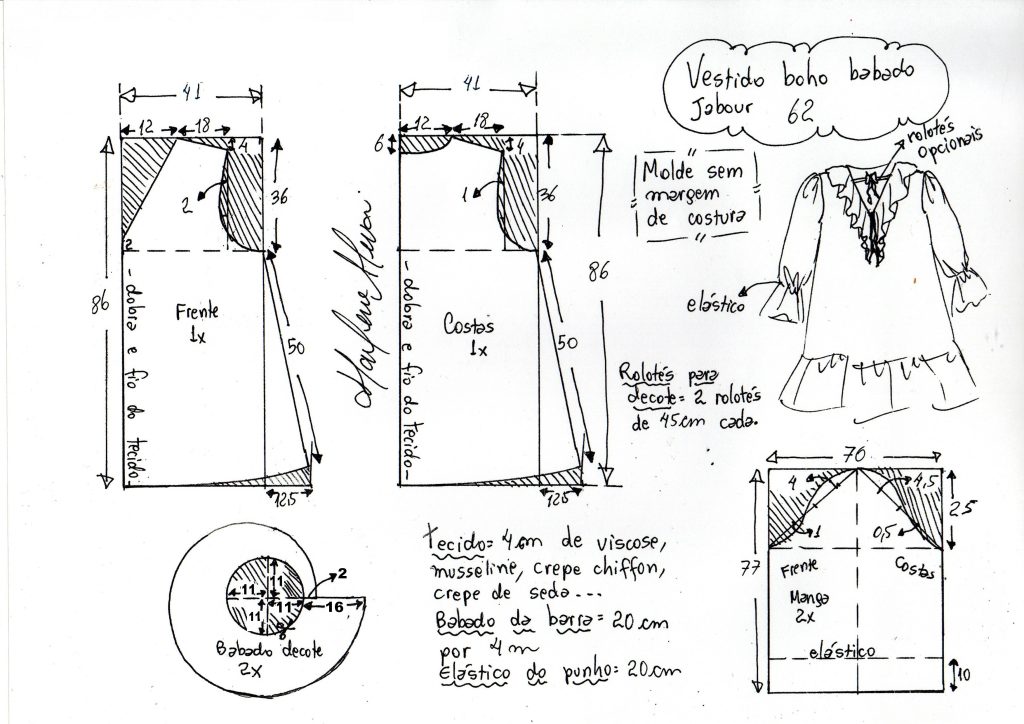 Vestido boho babado
Jabour 62
rolotés
opcionais
Molde sem
margem
de costura
elástico
Rolotés para
decote= 2 rolotés
de 45cm cada.
41
12
18
4
2
36
2
86
Frente
1x
-dobra e fio do tecido-
50
12,5
41
12
18
6
4
1
36
86
Costas
1x
-dobra e fio do tecido-
50
12,5
Marlene
11
11
11
11
2
16
Babado decote
2x
tecido= 4m de viscose,
musseline, crepe chiffon,
crepe de seda...
Babado da barra= 20cm
por 4m
Elástico do punho= 20cm
70
4
4,5
25
1
0,5
77
Frente
Costas
Manga
2x
elástico
10